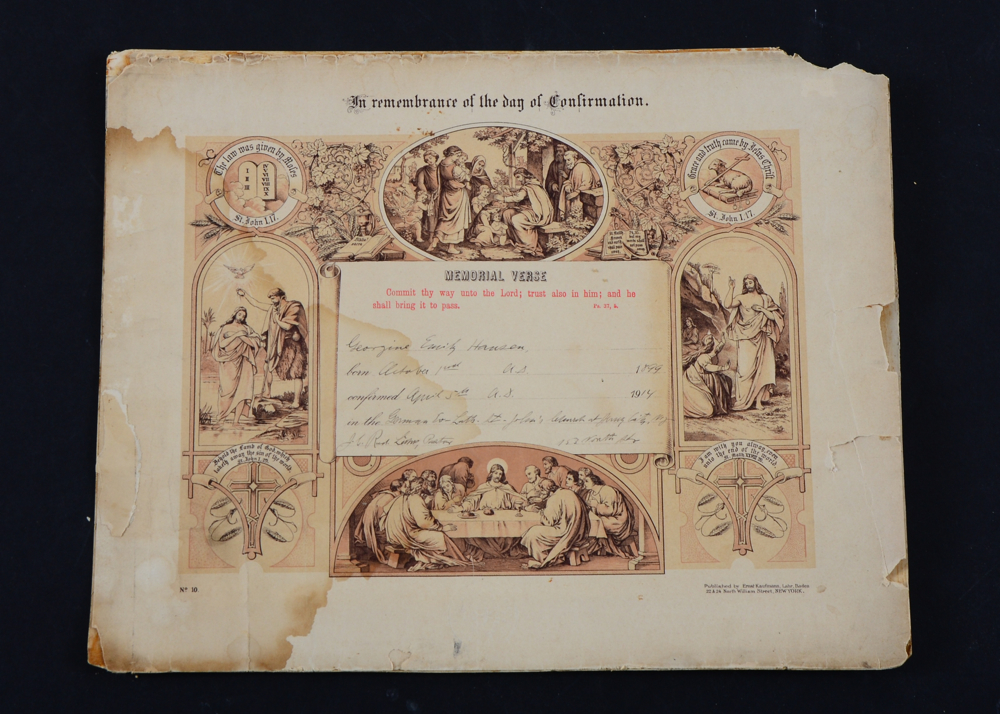 In remembrance of the day of Confirmation.
The law was given by Moses
St. John 1,17.
Grace and truth came by Jesus Christ
St. John 1,17.
MEMORIAL VERSE
Commit thy way unto the Lord; trust also in him; and he
shall bring it to pass. Ps. 37, 5.
Georgine Emily Hansen,
born October A.D. 1899
confirmed April 5th A.D. 1914
in the German Ev. Luth. St. John's Church at Jersey City, N.J.
Pastor North St.
Behold the Lamb of God, which
taketh away the sin of the world.
St. John 1,29.
I am with you alway, even
unto the end of the world.
St. Math. XXVIII, 20.
No 10.
Published by Ernst Kaufmann, Lahr, Baden
22 & 24 North William Street, NEW YORK.